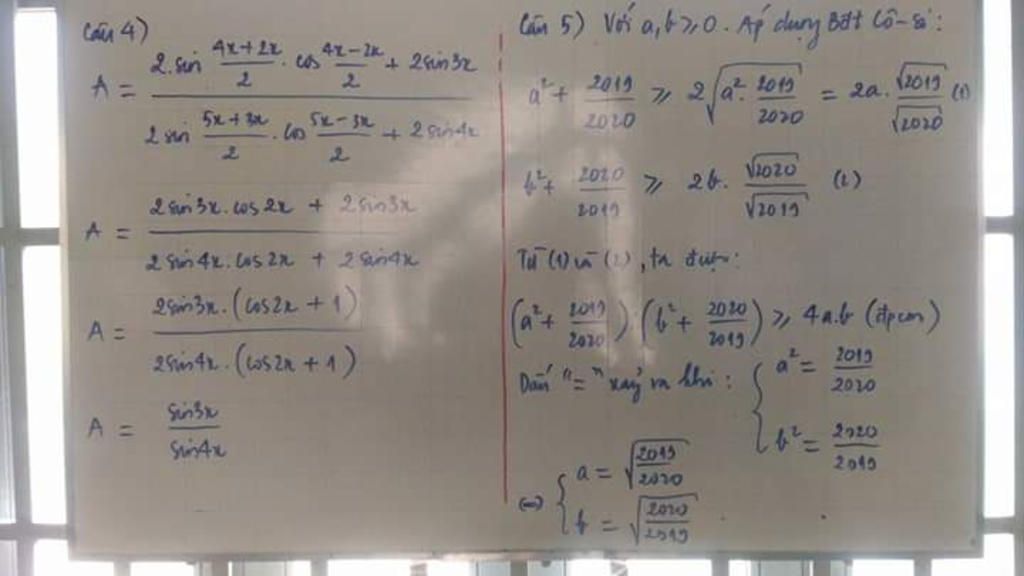 Câu 4)
A = (2.sin (4x+2x)/2 . cos (4x-2x)/2 + 2sin3x) / (2 sin (5x+3x)/2 . cos (5x-3x)/2 + 2sin4x)
A = (2sin3x.cos2x + 2sin3x) / (2sin4x.cos2x + 2sin4x)
A = (2sin3x.(cos2x + 1)) / (2sin4x.(cos2x + 1))
A = sin3x / sin4x
Câu 5) Với a,b ⩾ 0. Áp dụng Bđt Cô-si:
a² + 2019/2020 ⩾ 2√(a². 2019/2020) = 2a. √2019/√2020 (1)
b² + 2020/2019 ⩾ 2b. √2020/√2019 (2)
Từ (1) và (2), ta được:
(a² + 2019/2020).(b² + 2020/2019) ⩾ 4a.b (đpcm)
Dấu "=" xảy ra khi: { a² = 2019/2020
b² = 2020/2019
(=) { a = √(2019/2020)
b = √(2020/2019)